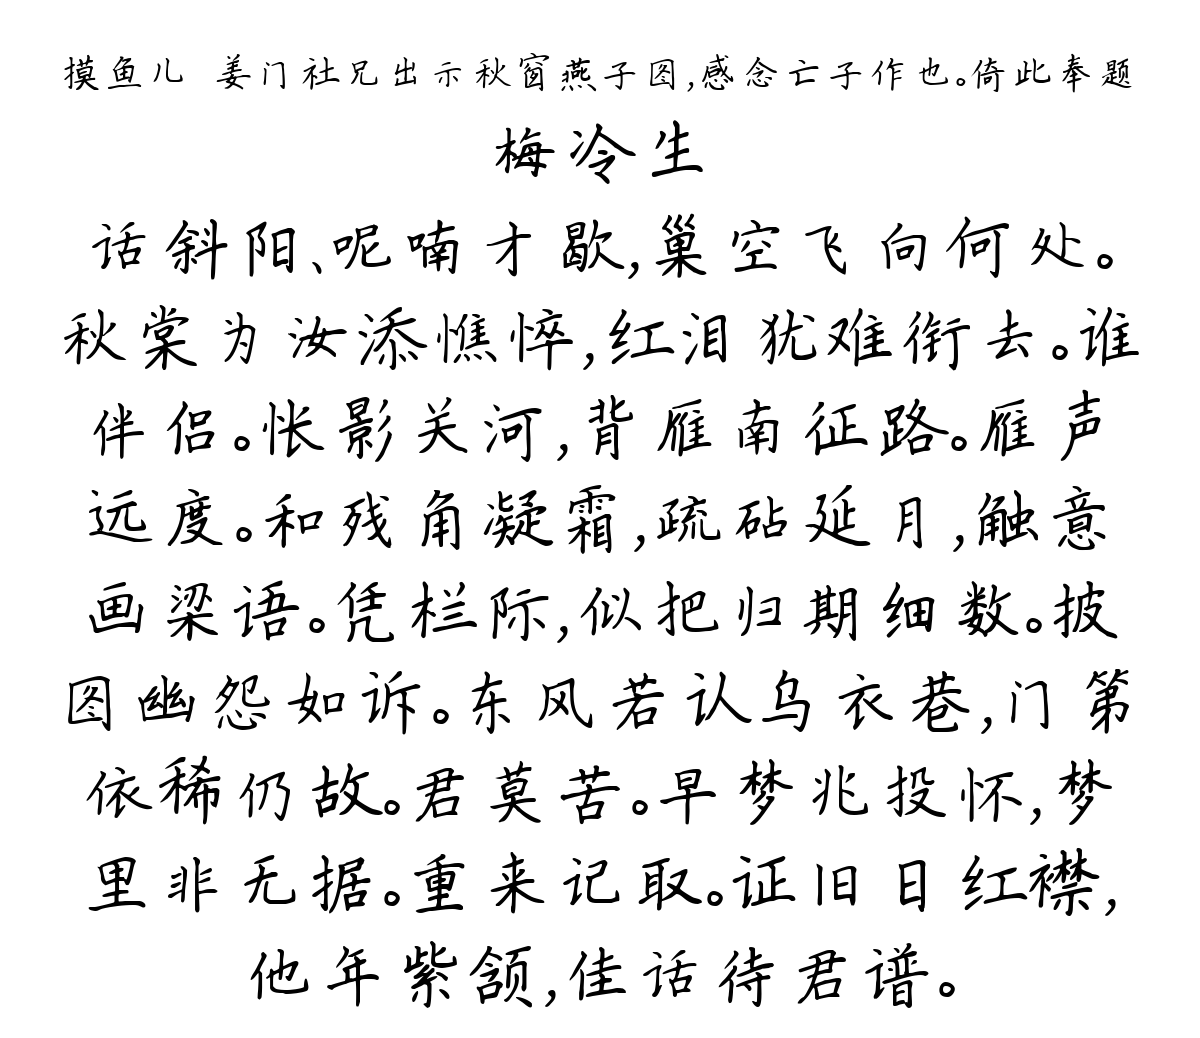 摸鱼儿 姜门社兄出示秋窗燕子图,感念亡子作也。倚此奉题
梅冷生
话斜阳、呢喃才歇,巢空飞向何处。
秋棠为汝添憔悴,红泪犹难衔去。谁
伴侣。怅影关河,背雁南征路。雁声
远度。和残角凝霜,疏砧延月,触意
画梁语。凭栏际,似把归期细数。披
图幽怨如诉。东风若认乌衣巷,门第
依稀仍故。君莫苦。早梦兆投怀,梦
里非无据。重来记取。证旧日红襟,
他年紫颔,佳话待君谱。